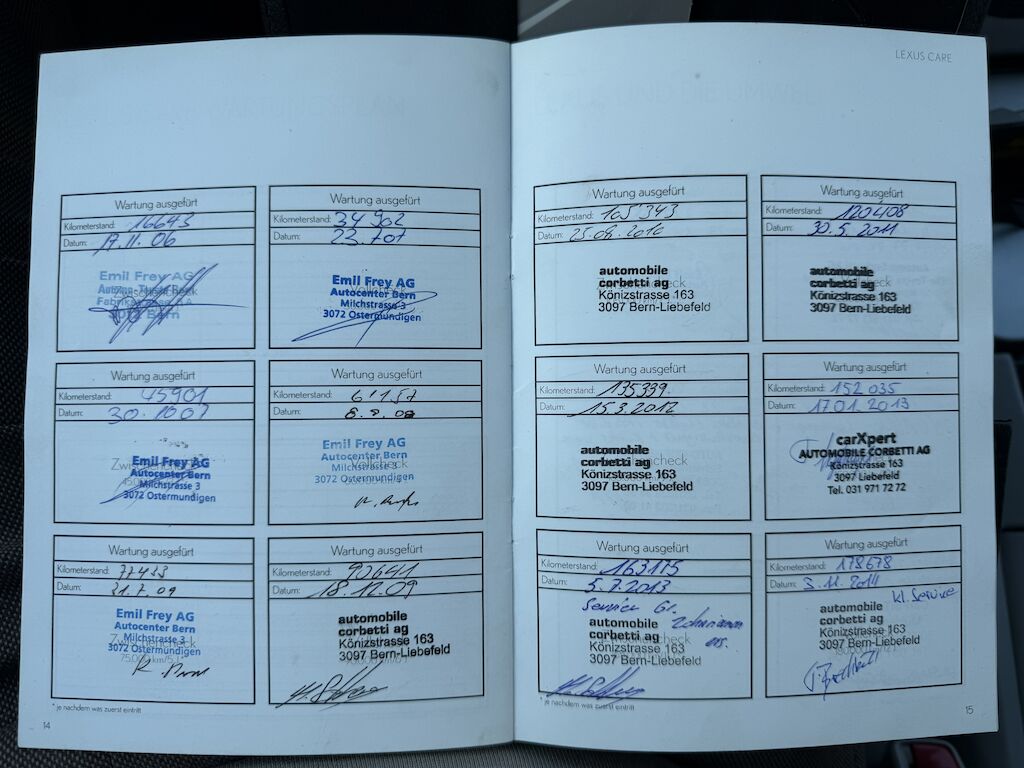 LEXUS CARE
Wartung ausgeführt
Kilometerstand: 16643
Datum: 17.11.06
Emil Frey AG
Bern
Wartung ausgeführt
Kilometerstand: 34902
Datum: 23.7.07
Emil Frey AG
Autocenter Bern
Milchstrasse 3
3072 Ostermundigen
Wartung ausgeführt
Kilometerstand: 45901
Datum: 30.10 07
Emil Frey AG
Autocenter Bern
Milchstrasse 3
3072 Ostermundigen
Wartung ausgeführt
Kilometerstand:
Datum:
Emil Frey AG
Autocenter Bern
Milchstrasse 3
3072 Ostermundigen
Wartung ausgeführt
Kilometerstand: 77433
Datum: 21.7.09
Emil Frey AG
Autocenter Bern
Milchstrasse 3
3072 Ostermundigen
Zwischencheck
Wartung ausgeführt
Kilometerstand: 90641
Datum: 18.12.09
automobile
corbetti ag
Könizstrasse 163
3097 Bern-Liebefeld
* je nachdem was zuerst eintritt
14
Wartung ausgeführt
Kilometerstand: 105'343
Datum: 25.08.2010
automobile
corbetti ag
Könizstrasse 163
3097 Bern-Liebefeld
Wartung ausgeführt
Kilometerstand: 120408
Datum: 30.5.2011
automobile
corbetti ag
Könizstrasse 163
3097 Bern-Liebefeld
Wartung ausgeführt
Kilometerstand: 135399
Datum: 15.3.2012
automobile
corbetti ag
Könizstrasse 163
3097 Bern-Liebefeld
Wartung ausgeführt
Kilometerstand: 152 035
Datum: 17.01.2013
carXpert
AUTOMOBILE CORBETTI AG
Könizstrasse 163
3097 Liebefeld
Tel. 031 971 72 72
Wartung ausgeführt
Kilometerstand: 163175
Datum: 5.7.2013
Service Gr.
automobile
corbetti ag
Könizstrasse 163
3097 Bern-Liebefeld
Wartung ausgeführt
Kilometerstand: 178678
Datum: 3.11.2014
kl. Service
automobile
corbetti ag
Könizstrasse 163
3097 Bern-Liebefeld
* je nachdem was zuerst eintritt
15